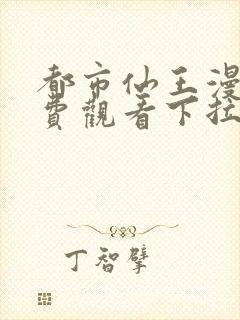 都市仙王漫
費觀看下拉
丁智擘